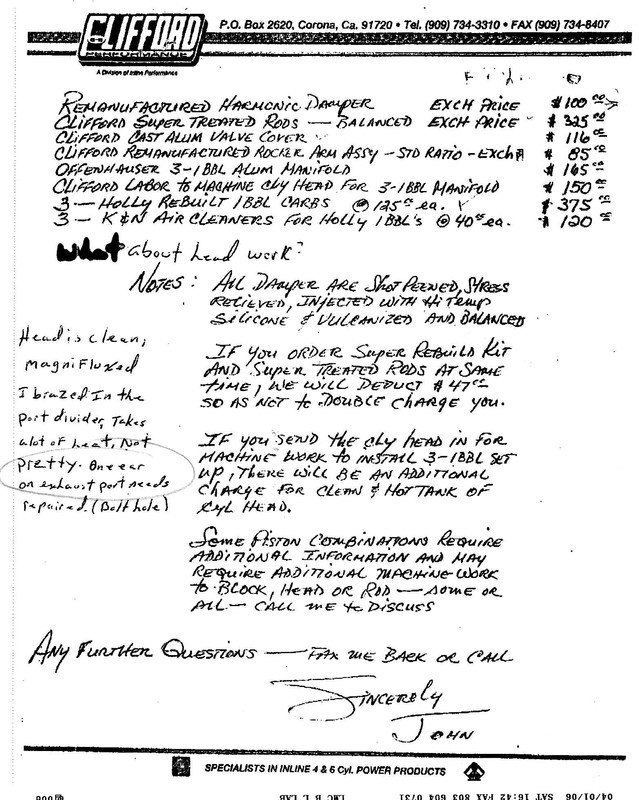 CLIFFORD
PERFORMANCE
A Division of Inline Performance
P.O. Box 2620, Corona, Ca. 91720 • Tel. (909) 734-3310 • FAX (909) 734-8407
REMANUFACTURED HARMONIC DAMPER EXCH PRICE $100.00
CLIFFORD SUPER TREATED RODS — BALANCED EXCH PRICE $325.00
CLIFFORD CAST ALUM VALVE COVER $116.00
CLIFFORD REMANUFACTURED ROCKER ARM ASSY - STD RATIO - EXCH $85.00
OFFENHAUSER 3-1BBL ALUM MANIFOLD $165.00
CLIFFORD LABOR TO MACHINE CLY HEAD FOR 3-1BBL MANIFOLD $150.00
3 - HOLLY REBUILT 1BBL CARBS @ 125.00 ea. $375.00
3 - K&N AIR CLEANERS FOR HOLLY 1BBL'S @ 40.00 ea. $120.00
What about head work?
NOTES: ALL DAMPER ARE SHOT PEENED, STRESS
RELIEVED, INJECTED WITH Hi Temp
SILICONE & VULCANIZED AND BALANCED
Head is clean,
magnifluxed
I brazed In the
port divider, Takes
alot of heat, Not
pretty. One ear
on exhaust port needs
repaired. (Bolt hole)
IF YOU ORDER SUPER REBUILD KIT
AND SUPER TREATED RODS AT SAME
TIME, WE WILL DEDUCT $47.00
SO AS NOT TO DOUBLE CHARGE YOU.
IF YOU SEND THE CLY HEAD IN FOR
MACHINE WORK TO INSTALL 3-1BBL SET
UP, THERE WILL BE AN ADDITIONAL
CHARGE FOR CLEAN & HOT TANK OF
CYL HEAD.
SOME PISTON COMBINATIONS REQUIRE
ADDITIONAL INFORMATION AND MAY
REQUIRE ADDITIONAL MACHINE WORK
TO BLOCK, HEAD OR ROD — SOME OR
ALL — CALL ME TO DISCUSS
ANY FURTHER QUESTIONS — FAX ME BACK OR CALL
SINCERELY
JOHN
SPECIALISTS IN INLINE 4 & 6 Cyl. POWER PRODUCTS
04/01/06 SAT 16:42 FAX 803 604 0731